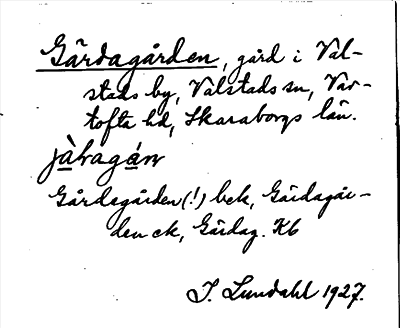 Gärdagården, gård i Val-
stads by, Valstads sn, Var-
tofta hd, Skaraborgs län.
jàragán
Gårdegården (!) bek, Gärdagår-
den ek, Gärdag. Kb
I. Lundahl 1927.